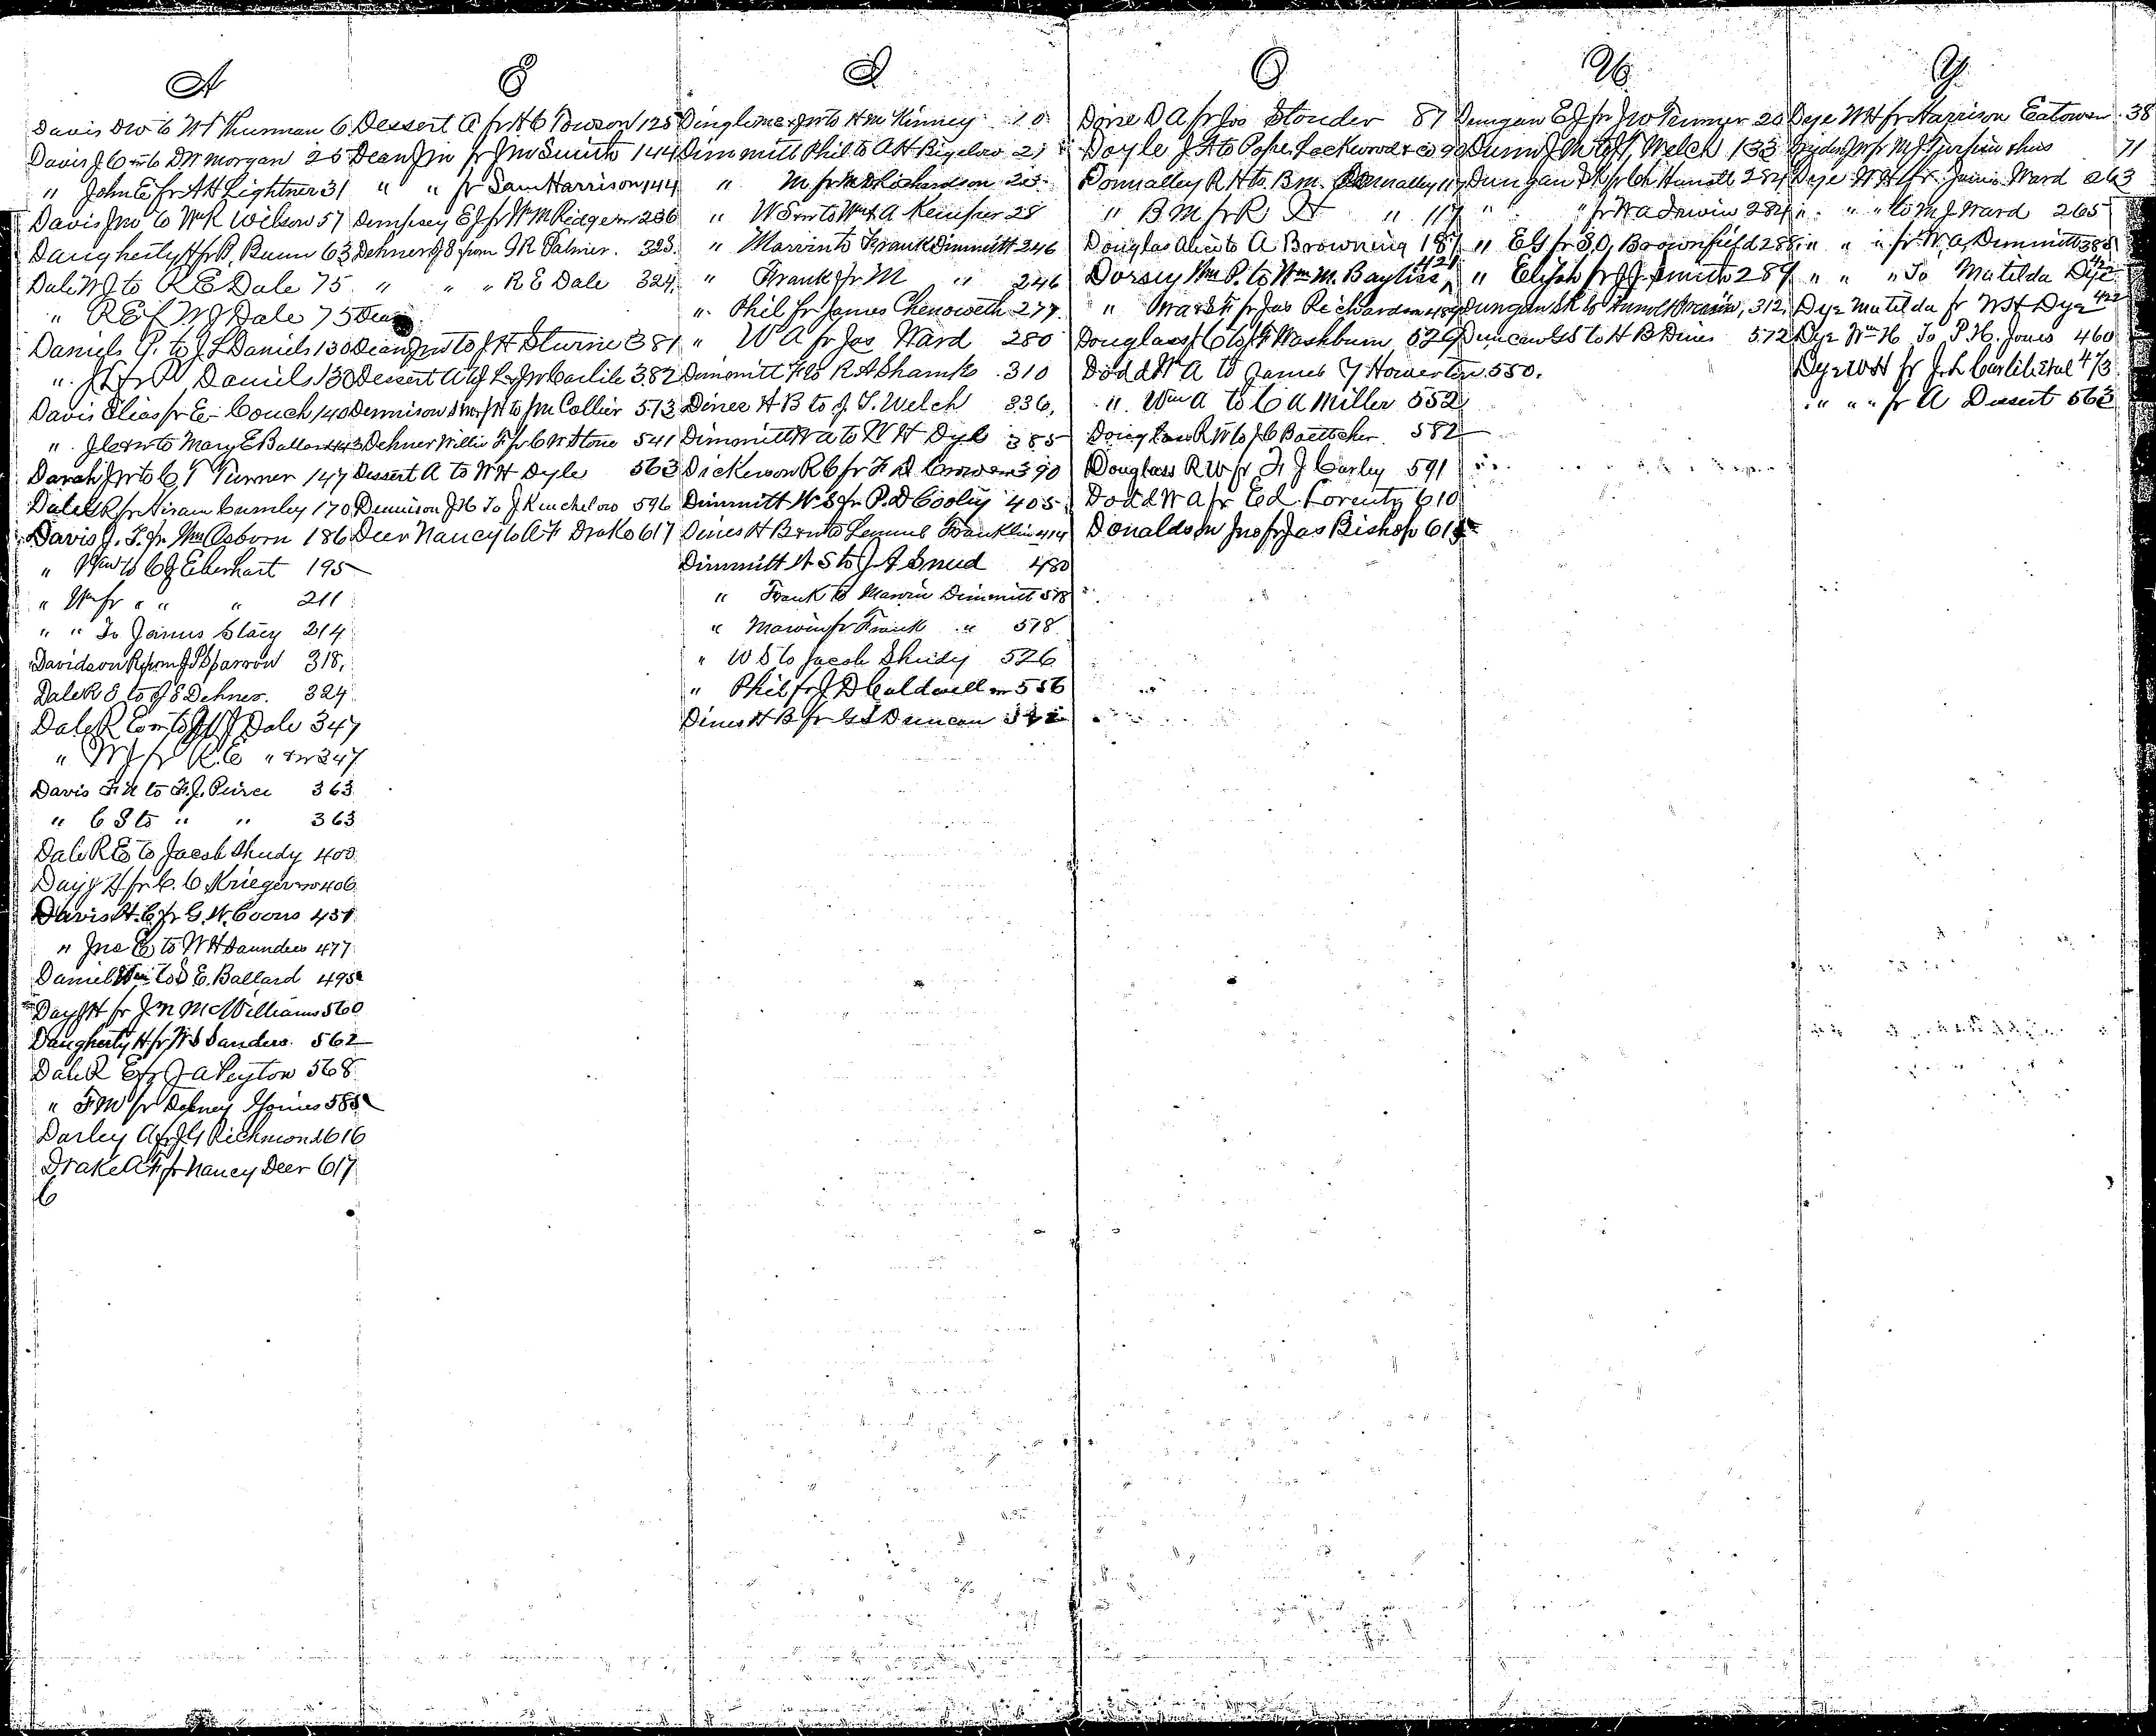 A
Davis DW to W T Thurman 6
Davis J C to D W Morgan 25
" John E fr A H Lightner 31
Davis Jno to W R Wilson 57
Daugherty H fr B. Bunn 63
Dale W J to R E Dale 75
" R E f W J Dale 75
Daniels G. to J L Daniels 130
" J L fr G Daniels 130
Davis Elias fr E Couch 140
" to Mary E Ballard 143
Darah to C T Turner 147
Dale R fr Hiram Cumley 170
Davis J. T. fr Wm Osborn 186
" to C J Eberhart 195
" Wm fr " " " 211
" " To James Stacy 214
Davidson R from J P Sparrow 318
Dale R E to J E Dehner. 324
Dale R E to W J Dale 347
" W J fr R. E " 347
Davis to F. J. Peirce 363
" C S to " " 363
Dale R E to Jacob Shudy 400
Day J H fr C. C Krieger 406
Davis H. C fr G. W. Coons 451
" Jno E to W H Saunders 477
Daniel Wm to D E. Ballard 495
Day J H fr J M McWilliams 560
Daugherty H fr W S Sanders. 562
Dale R E fr J A Peyton 568
" F M fr Dabney 585
Darley A fr J G Richmond 616
Drake A F fr Nancy Deer 617
E
Dessert A fr H C Towson 125
Dean Jno fr Jno Smith 144
" " fr Sam Harrison 144
Dempsey E J fr Wm Ridge 286
Dehner J E from G R Palmer. 323
" " " R E Dale 324
Dean
Dean Jno to J H Sturm 381
Dessert A fr Carlile 382
Dennison to Jno Collier 513
Dehner Willis F fr C W Stone 541
Dessert A to W H Dyle 563
Dennison J H To J Kincheloe 596
Deer Nancy to A F Drake 617
I
to Hm Kinney 10
Dimmitt Phil to A H Bigelow 21
" M fr Richardson 23
" W S to Wm A Kemper 28
" Marvin to Frank Dimmitt 246
" Frank fr M " 246
" Phil fr James Chenoweth 277
" W A fr Jas Ward 280
Dimmitt F to R A Shanks 310
Dines H B to J. T. Welch 336
Dimmitt W A to W H Dye 385
Dickerson R C fr F D Crowder 390
Dimmitt W S fr P. D Cooley 405
Dines H B to Lemuel Franklin 414
Dimmitt W S to J A Snead 480
" Frank to Marvin Dimmitt 518
" Marvin fr Frank " 518
" W S to Jacob Shudy 526
" Phil fr J D Caldwell 556
Dines H B fr G S Duncan 572
O
Dorie D A fr Jos Stouder 87
Doyle J A to Pope Lockwood & Co 99
Donnalley R H to B M. Donnalley 117
" B M fr R H " 117
Douglas Alice to A Browning 187
Dorsey Wm P. to Wm M. Bayliss, 421
" fr Jas Richardson
Douglass to Washburn 529
Dodd W A to James Y Howerton 550.
" Wm A to C A Miller 552
Douglass R W to J C Baettcher. 582
Douglass R W fr F. J Curley 591
Dodd W A fr Ed. Lorentz 610
Donaldson Jno fr Jas Bishop 614
U
Dungan E J fr Jno Tenner 20
Dunn J M to J T. Welch 133
Dungan S K fr Ch Hansell 284
" " fr W A Irwin 284
" E J fr S. O. Brownfield 288
" Elijah fr J J Smith 289
Dungan S K to 312
Duncan G S to H B Dines 572
Y
Dye W H fr Harrison Eatowen 38
Dyden 71
Dye W H fr. James Ward 263
" " " to M J Ward 265
" " " fr W. A. Dimmitt 385
" " " To Matilda Dye 422
Dye Matilda fr W H Dye 422
Dye Wm H To P H. Jones 460
Dye W H fr J. L Carlile 473
" " " fr A Dessert 563